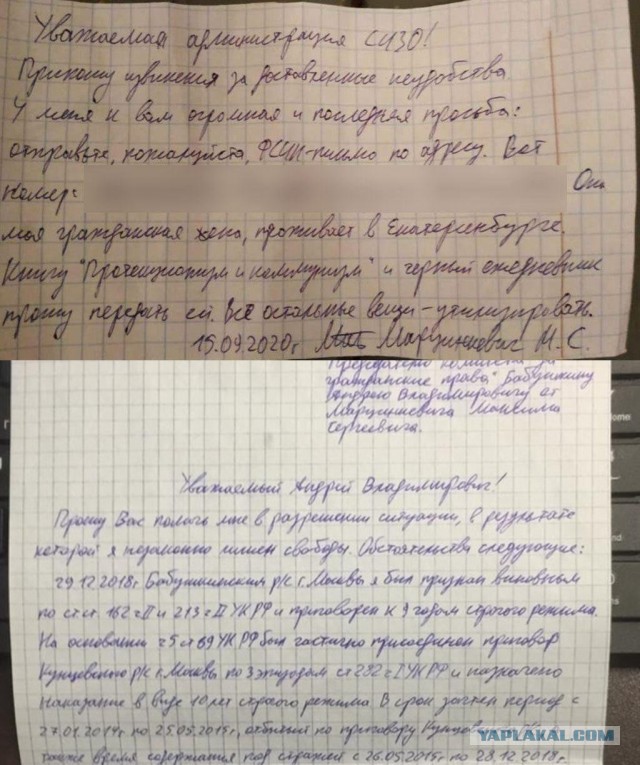 Уважаемая администрация СИЗО!
Приношу извинения за доставленные неудобства
У меня к вам огромная и последняя просьба:
отправьте, пожалуйста, ФСИН-письмо по адресу. Вот
номер: Она
моя гражданская жена, проживает в Екатеринбурге.
Книгу "Протекционизм и коммунизм" и черный ежедневник
прошу передать ей. Всё остальные вещи - утилизировать.
15.09.2020г Марцинкевич М. С.
гражданские права" Бабушкину
Андрею Владимировичу от
Марцинкевича Максима
Сергеевича.
Уважаемый Андрей Владимирович!
Прошу Вас помочь мне в разрешении ситуации, в результате
которой я незаконно лишен свободы. Обстоятельства следующие:
29.12.2018г. Бабушкинским р/с г. Москвы я был признан виновным
по ст.ст. 162 ч II и 213 ч II УК РФ и приговорен к 9 годам строгого режима.
На основании ч 5 ст 69 УК РФ был частично присоединен приговор
Кунцевского р/с г. Москвы по 3 эпизодам ст 282 ч I УК РФ и назначено
наказание в виде 10 лет строгого режима. В срок зачтен период с
27.01.2014г. по 25.05.2015г, отбытый по приговору
также время содержания под стражей с 26.05.2015г по 28.12.2018г.
YAPLAKAL.COM